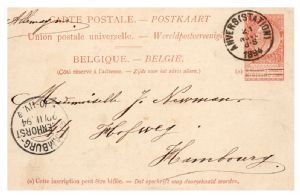 Allemagne
CARTE POSTALE. – POSTKAART
Union postale universelle. – Wereldpostvereeniging
BELGIQUE. – BELGIE.
(Côté réservé à l'adresse. – Zijde voor het adres alleen.)
ANVERS (STATION)
1894
Mademoiselle J. Newman
54 Hofweg
Hambourg
HAMBURG
UHLENHORST
94
(a) Cette inscription peut être biffée. – Dat opschrift mag doorgehaald worden.